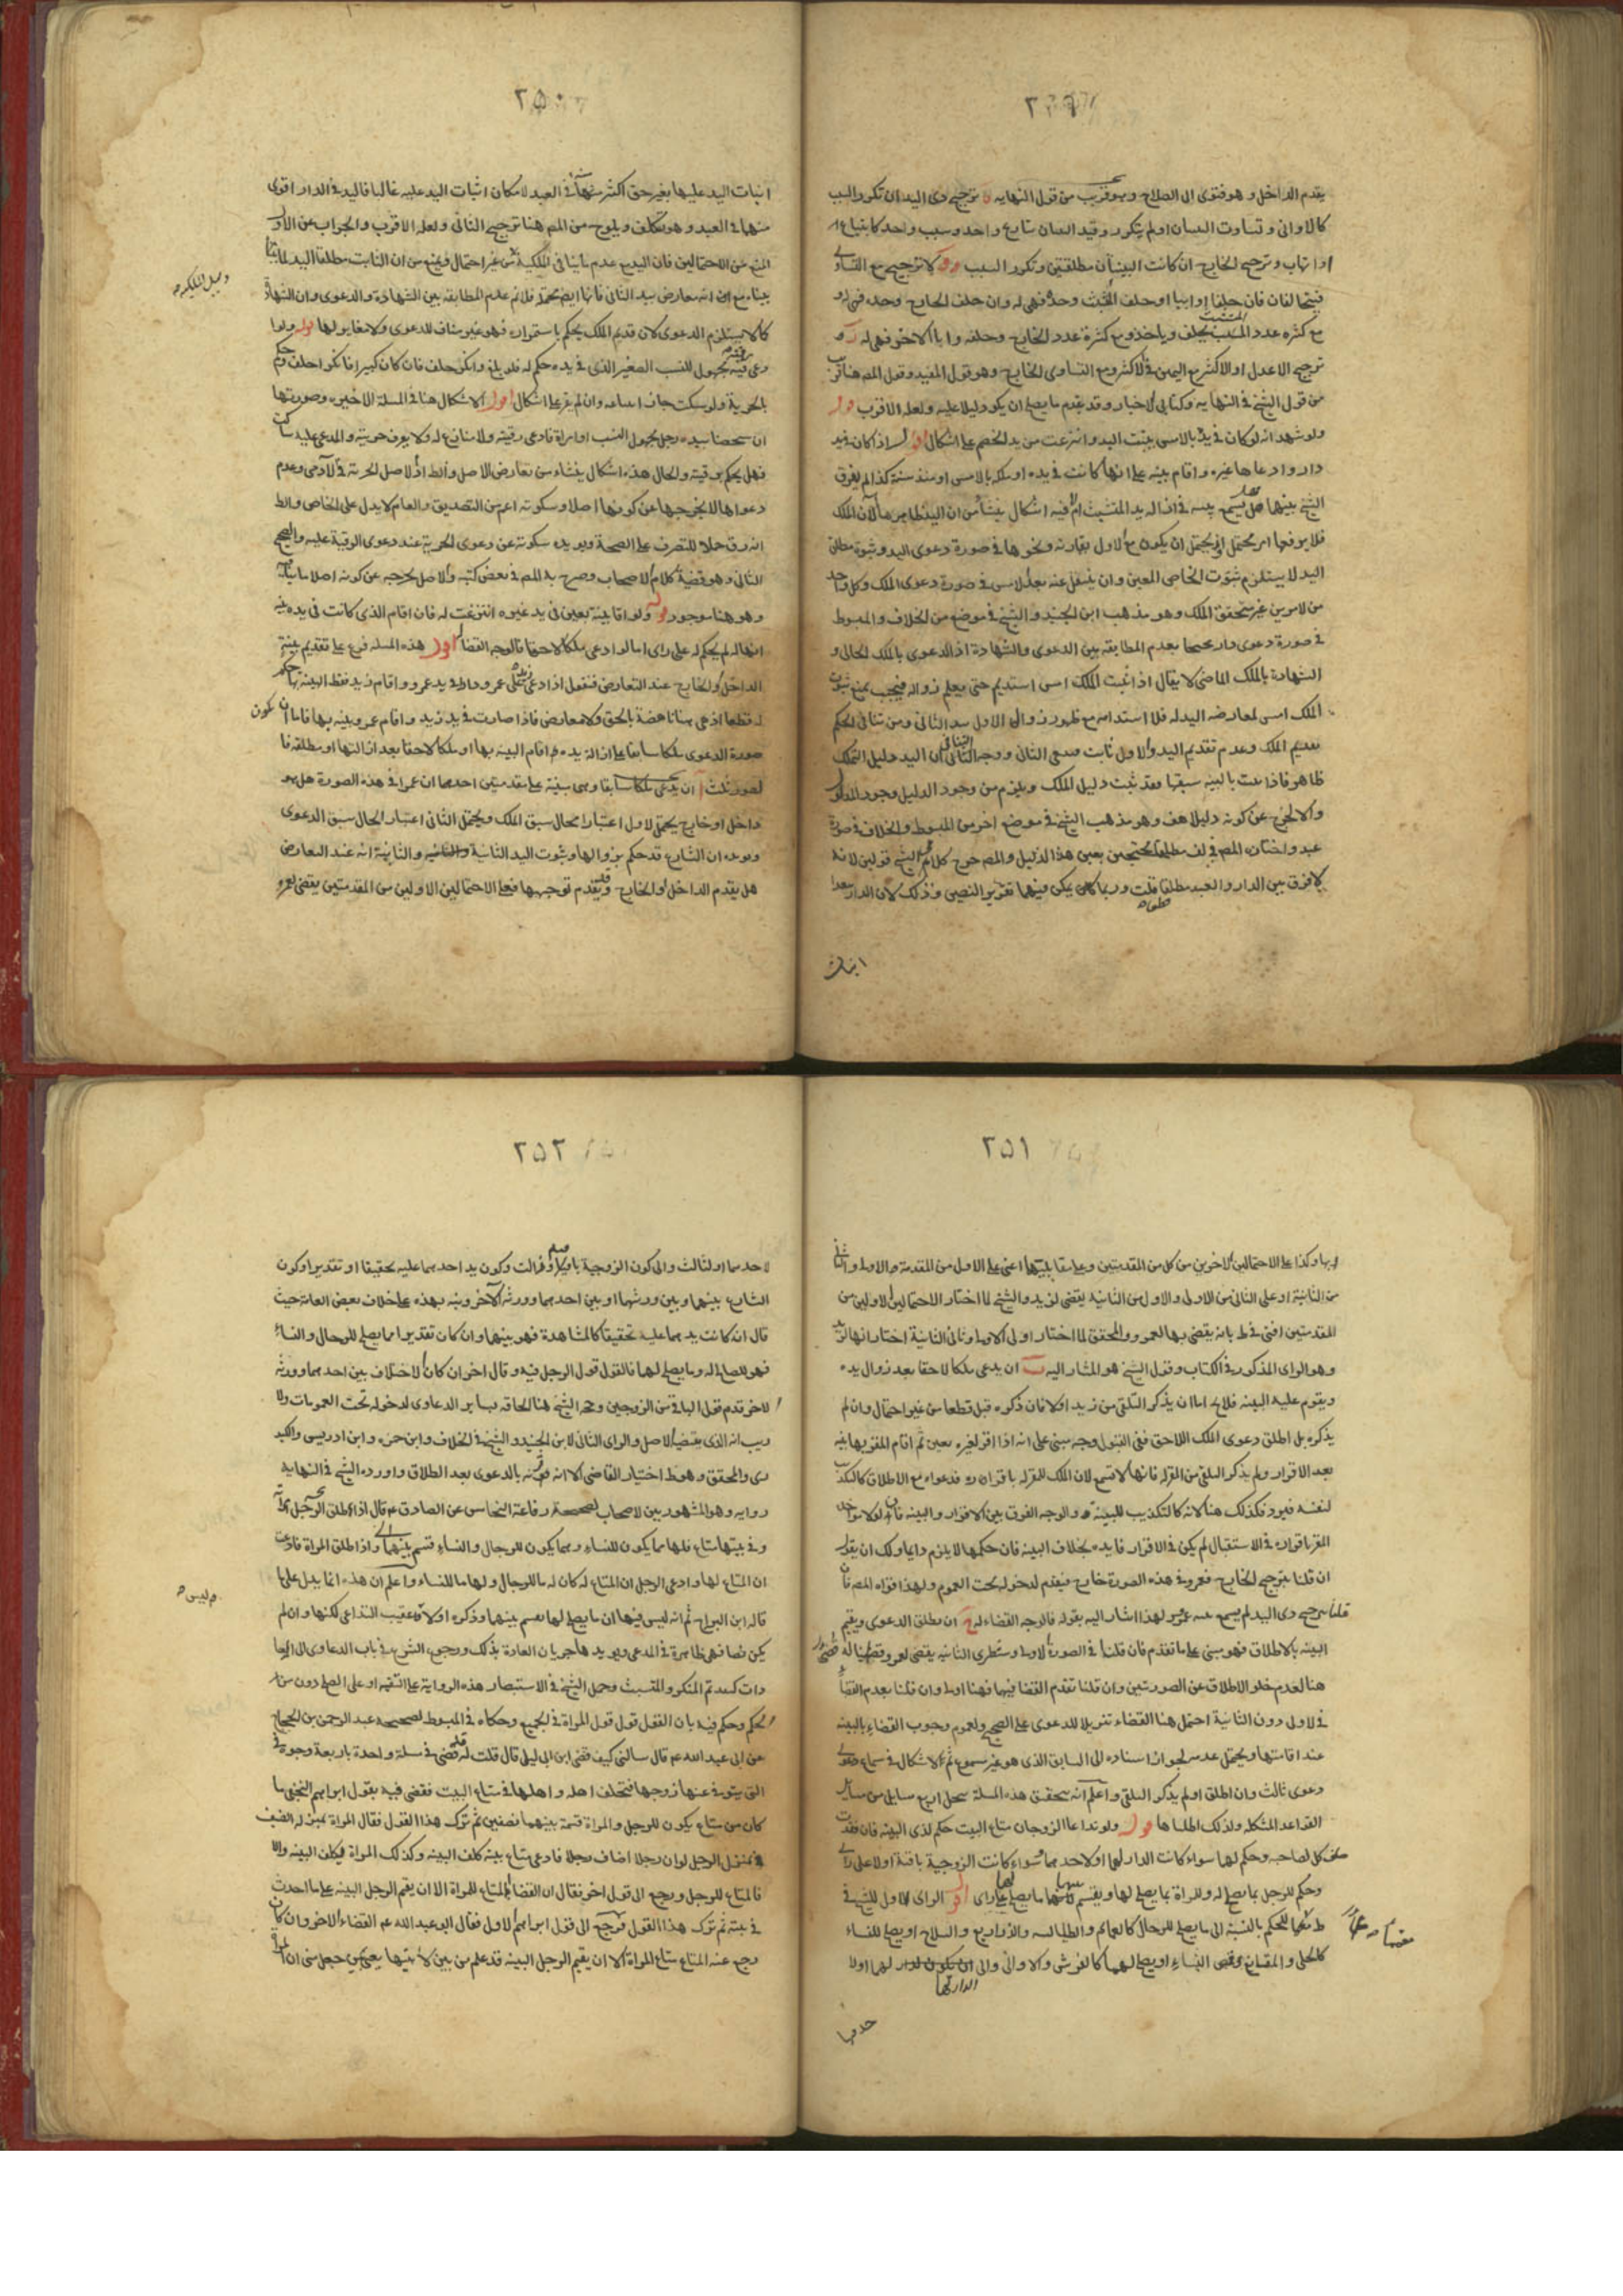 ٢٤٩
يقدم الداخل و هو فتوى ابي الصلاح وهو قريب من قول النهايه ترجيح ذى اليد ان تكرر السبب
كالاوانى و تساوت
اذا تهاب و ترجيح الخارج ان كانت البينتان مطلقتين وتكرر السبب لا ترجيح مع التساوى
فيتحالفان فان حلفا او ابيا او حلف المثبت وحده فهى له وان حلف الخارج وحده فهى له و
مع كثره عدد المثبت يحلف وياخذ ومع كثرة عدد الخارج وحلفه و ابا الاخر فهى له
ترجيح الاعدل او الاكثر مع اليمين فى الاكثر ومع التساوى الخارج وهو قول المفيد وقول المص هنا قريب
من قول الشيخ فى النهايه وكتابى الاخبار وقد تقدم ما يصلح ان يكون دليلا عليه ولعله الاقرب قوله
ولو شهد انه لو كان فى يده بالامس يثبت اليد و انتزعت من يد الخصم على اشكال اقول اذا كان فى يد
دار و ادعاها غيره و اقام بينه على انها كانت فى يده او ملكه بالامس او منذ سنة كذا لم يفرق
الشيخ بينهما هل يسمع بينته فى اثباله يد المتشبث ام لا فيه اشكال ينشأ من ان اليد ظاهرها الان الملك
فلا يرفعها امر محتمل اذ يحتمل ان يكون مع الاول بعاريه ونحوها فى صورة دعوى اليد وثبوت مطلق
اليد لا يستلزم ثبوت الخاص المعين و ان ينتقل عنه بعد الامس فى صورة دعوى الملك وكل واحد
من الامرين غير متحقق الملك وهو مذهب ابن الجنيد و الشيخ فى موضع من الخلاف و المبسوط
فى صورة دعوى دار بعدم المطابقه بين الدعوى والشهادة اذ الدعوى بالملك الحالى و
الشهادة بالملك الماضى لا يقال اذا ثبت الملك امس استديم حتى يعلم زواله فيجب بمنع ثبوت
الملك امس لمعارضه اليد له فلا استدامه مع ظهور زوال الاول بيد الثانى ومن تنافى الحكم
بقديم الملك وعدم تقديم اليد والاول ثابت فينتفى الثانى ووجه التنافى ان اليد دليل الملك
ظاهر فاذا ثبت بالبينه سبقها فقد ثبت دليل الملك ويلزم من وجود الدليل وجود المدلول
و الا لخرج عن كونه دليلا هف و هو مذهب الشيخ فى موضع اخر من المبسوط و الخلاف فى صورة
عبد و اختاره المص فى لف مطلقا محتجين بعين هذا الدليل و المص خرج كلام الشيخ قولين لانه
لا فرق بين الدار و العبد مطلقا قلت و ربما كان يمكن فيهما تقرير النصين و ذلك لان الدار يبعد
اثبات
٢٥٠
اثبات اليد عليها بغير حق اكثر منها فى العبد لامكان اثبات اليد عليه غالبا فاليد فى الدار اقوى
منها فى العبد و هو تكلف و يلوح من المص هنا ترجيح الثانى و لعله الاقرب والجواب عن الاول
المنع من الاحتمالين فان اليد مع عدم ماينافى الملكية من غير احتمال ويمنع من ان الثابت مطلق اليد لما بيناه
و سبيل الملكيه صح
كما لا يستلزم الدعوى لان قديم الملك يحكم باستمراره فهو غير مناف للدعوى ولا مغاير لها قوله و لو ا
دعى رقية مجهول النسب الصغير الذى فى يده حكم له فلو بلغ و انكر حلف فان كان كبيرا فانكر احلف وحكم
بالحرية ولو سكت جاز ابتياعه وان لم يقر على اشكال اقول الاشكال هنا فى المسلة الاخيره وصورتها
ان شخصا بيده رجل مجهول النسب او امراة فادعى رقيته ولا منازع له ولا يعرف حريته والمدعى عليه ساكت
فهل يحكم برقيته والحال هذه اشكال ينشاء من تعارض الاصل و الظ اذ الاصل الحرية فى الآدمى وعدم
دعواها لا يخرجها عن كونها اصلا و سكوته اعم من التصديق والعام لا يدل على الخاص والظ
انه رق حملا للتصرف على الصحة ويويده سكوته عن دعوى الحرية عند دعوى الرقية عليه والصحيح
الثانى وهو قضية كلام الاصحاب و صرح به المص فى بعض كتبه و الاصل يخرجه عن كونه اصلا ما
وهو هنا موجود قوله ولو اقام بينة بعين فى يد غيره انتزعت له فان اقام الذى كانت فى يده بينه
انها له لم يحكم له على راى اما لو ادعى ملكا لاحقا فالوجه القضا اقول هذه المسله فرع على تقديم بينة
الداخل و الخارج عند التعارض فنقول اذا ادعى زيد على عمرو دارا فى يد عمرو و اقام زيد فقط البينه بها حكم
له قطعا اذ هى بينة ناهضة بالحق ولا معارض فاذا صارت فى يد زيد و اقام عمرو بينه بها فاما ان يكون
صورة الدعوى ملكا سابقا على ازالة يده و اقام البينه بها او ملكا لاحقا بعد ازالتها او مطلقه فا
لصور ثلث ا ان يدعى ملكا سابقا و هى مبنية على مقدمتين احديهما ان عمرا فى هذه الصورة هل هو
داخل او خارج يحتمل الاول اعتبارا بحال سبق الملك ويحتمل الثانى اعتبار الحال سبق الدعوى
ويويده ان الشارع قد حكم بزوالها وثبوت اليد الثانية و الثانية انه عند التعارض
هل يقدم الداخل او الخارج وقد تقدم توجيهها فعلى الاحتمالين الاولين من المقدمتين يقضى لعمرو
٢٥١
بها وكذا على الاحتمالين الاخرين من كل من المقدمتين وعلى مقابليهما اعنى على الاول من المقدمة الاولى و الثانى
من الثانية او على الثانى من الاولى والاول من الثانية يقضى لزيد والشيخ لما اختار الاحتمالين الاولين من
المقدمتين افتى فى ط بانه يقضى بها لعمرو والمحقق لما اختار اولى الاولى و ثانى الثانية اختار انها لزيد
وهو الراى المذكور فى الكتاب وقول الشيخ هو المشار اليه ب ان يدعى ملكا لاحقا بعد زوال يده
ويقوم عليه البينه فلا يخ اما ان يذكر التلقى من زيد او لا فان ذكره قبل قطعا من غير احتمال وان لم
يذكره بل اطلق دعوى الملك اللاحق ففى القبول وجه مبنى على انه اذا اقر لغيره بعين ثم اقام المقر بها بينه
بعد الاقرار ولم يذكر التلقى من المقر له فانها لا تسمع لان الملك للمقر له باقراره فدعواه مع الاطلاق كالمكذب
لنفسه فيرد فكذلك هنا لانه كالتكذيب للبينة والوجه الفرق بين الاقرار والبينه فانه لو لا مواخذة
المقر باقراره فى الاستقبال لم يكن فى الاقرار فايده بخلاف البينه فان حكمها لا يلزم دايما ولك ان يقول
ان قلنا بترجيح الخارج فعمرو فى هذه الصورة خارج فيقدم لدخوله تحت العموم ولهذا قواه المص فان
قلنا بترجيح ذى اليد لم يسمع بينه عمرو لهذا اشار اليه بقوله فالوجه القضاء له ج ان يطلق الدعوى ويقيم
البينه بالاطلاق فهو مبنى على ما تقدم فان قلنا فى الصورة الاولى و شطرى الثانيه يقضى لعمرو قضينا له
هنا لعدم خلو الاطلاق عن الصورتين وان قلنا بعدم القضا فيهما فهنا اولى وان قلنا بعدم القضاء
فى الاولى دون الثانية احتمل هنا القضاء تنزيلا للدعوى على الصحيح ولعموم وجوب القضاء بالبينه
عند اقامتها ويحتمل عدمه لجواز استناده الى السابق الذى هو غير مسموع ثم لا اشكال فى سماع دعوى
دعوى ثالث وان اطلق او لم يذكر التلقى و اعلم انه بتحقيق هذه المسلة ينحل اربع مسايل من مسايل
القواعد المشكله ولذلك اطلناها قوله ولو تداعا الزوجان متاع البيت حكم لذى البينه فان فقدت
حلف كل لصاحبه وحكم لهما سواء كانت الدار لهما او لاحدهما وسواء كانت الزوجية باقية او لا على راى
وحكم للرجل بما يصلح له وللمراة بما يصلح لها ويقسم بينهما ما يصلح لهما على راى اقول الراى الاول للشيخ فى
ط للحكم بالنسبة الى ما يصلح للرجال كالعمائم والطيالسه والدراريع و السلاح او يصلح للنساء
كالحلى و المقانع و قمص النساء او يصلح لهما كالفرش و الاوانى والى ان يكون الدار لهما اولا
الدار لهما
حدهما
٢٥٢
لاحدهما او لثالث والى كون الزوجية باقية او زالت وكون يد احدهما عليه تحقيقا او تقديرا وكون
التنازع بينهما و بين ورثتهما او بين احدهما وورثه الآخر و نبه بهذه على خلاف بعض العامة حيث
قال ان كانت يدهما عليه تحقيقا كالمشاهدة فهو بينهما وان كان تقديرا مما يصلح للرجال و النساء
فهو للصالح له وما يصلح لهما فالقول قول الرجل فيه و قال اخر ان كان الاختلاف بين احدهما وورثه
الاخر قدم قول الباقى من الزوجين و حجه الشيخ هنا الحاقه بساير الدعاوى لدخوله تحت العمومات ولا
ريب انه الذى يقتضيه الاصل و الراى الثانى لابن الجنيد و الشيخ فى الخلاف وابن حمزه و ابن ادريس والكيد
رى والمحقق و هو ظ اختيار القاضى الا انه فرضه بالدعوى بعد الطلاق و اورده الشيخ فى النهايه
روايه وهو المشهور بين الاصحاب لصحيحة رفاعة النخاس عن الصادق ع قال اذا طلق الرجل امراته
و فى بيتها متاع فلها ما يكون للنساء وما يكون للرجال والنساء قسم بينهما و اذا طلق المراة فادعت
ان المتاع لها و ادعى الرجل ان المتاع له كان له ما للرجال ولها ما للنساء و اعلم ان هذه انما يدل على ما
م ليس صح
قاله ابن البراج ثم انه ليس فيها ان ما يصلح لهما يقسم بينهما وذكره اولا و عقيب التداعى لكنها وان لم
يكن نصا فهى ظاهرة فى المدعى ويويدها جريان العادة بذلك ورجوع الشرع فى باب الدعاوى الى العا
دات كتقديم المنكر والمتشبث وحمل الشيخ فى الاستبصار هذه الرواية على التقيه او على الصلح دون مر
الحكم وحكم فيه بان القول قول المراة فى الجميع وحكاه فى المبسوط لصحيحه عبد الرحمن بن الحجاج
عن ابى عبد الله ع قال سالنى كيف قضى ابن ابى ليلى قال قلت له قضى فى مسلة واحدة باربعة وجوه فى
التى يتوفى عنها زوجها فتخلف اهله و اهلها فى متاع البيت فقضى فيه بقول ابراهيم النخعى ما
كان من متاع يكون للرجل و المراة قسمه بينهما نصفين ثم ترك هذا القول فقال المراة بمنزله الضيف
فى منزل الرجل لو ان رجلا اضاف رجلا فادعى متاع بيته كلف البينه وكذلك المراة فكلف البينه و الا
فالمتاع للرجل و رجع الى قول اخر فقال ان القضا ان المتاع للمراة الا ان يقيم الرجل البينه على ما احدث
فى بيته ثم ترك هذا القول فرجع الى قول ابراهيم الاول فقال ابو عبد الله ع القضاء الاخير وان كان
رجع عنه المتاع متاع المراة الا ان يقيم الرجل البينه قد علم من بين لابتيها يعنى بين جبلى منى ان المراة